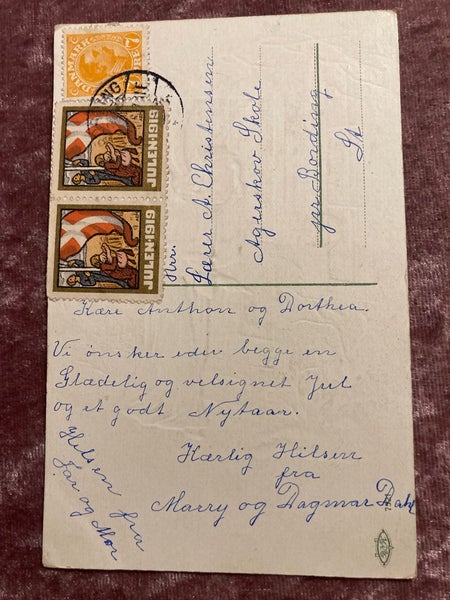 7 ØRE
DANMARK
JULEN·1919
JULEN·1919
Hrr.
Lærer A. Christensen
Agerskov Skole
pr Bording
St
Kære Anthon og Dorthea.
Vi ønsker eder begge en
Glædelig og velsignet Jul
og et godt Nytaar.
Kærlig Hilsen
fra
Marry og Dagmar Dahl
Hilsen fra
Far og Mor